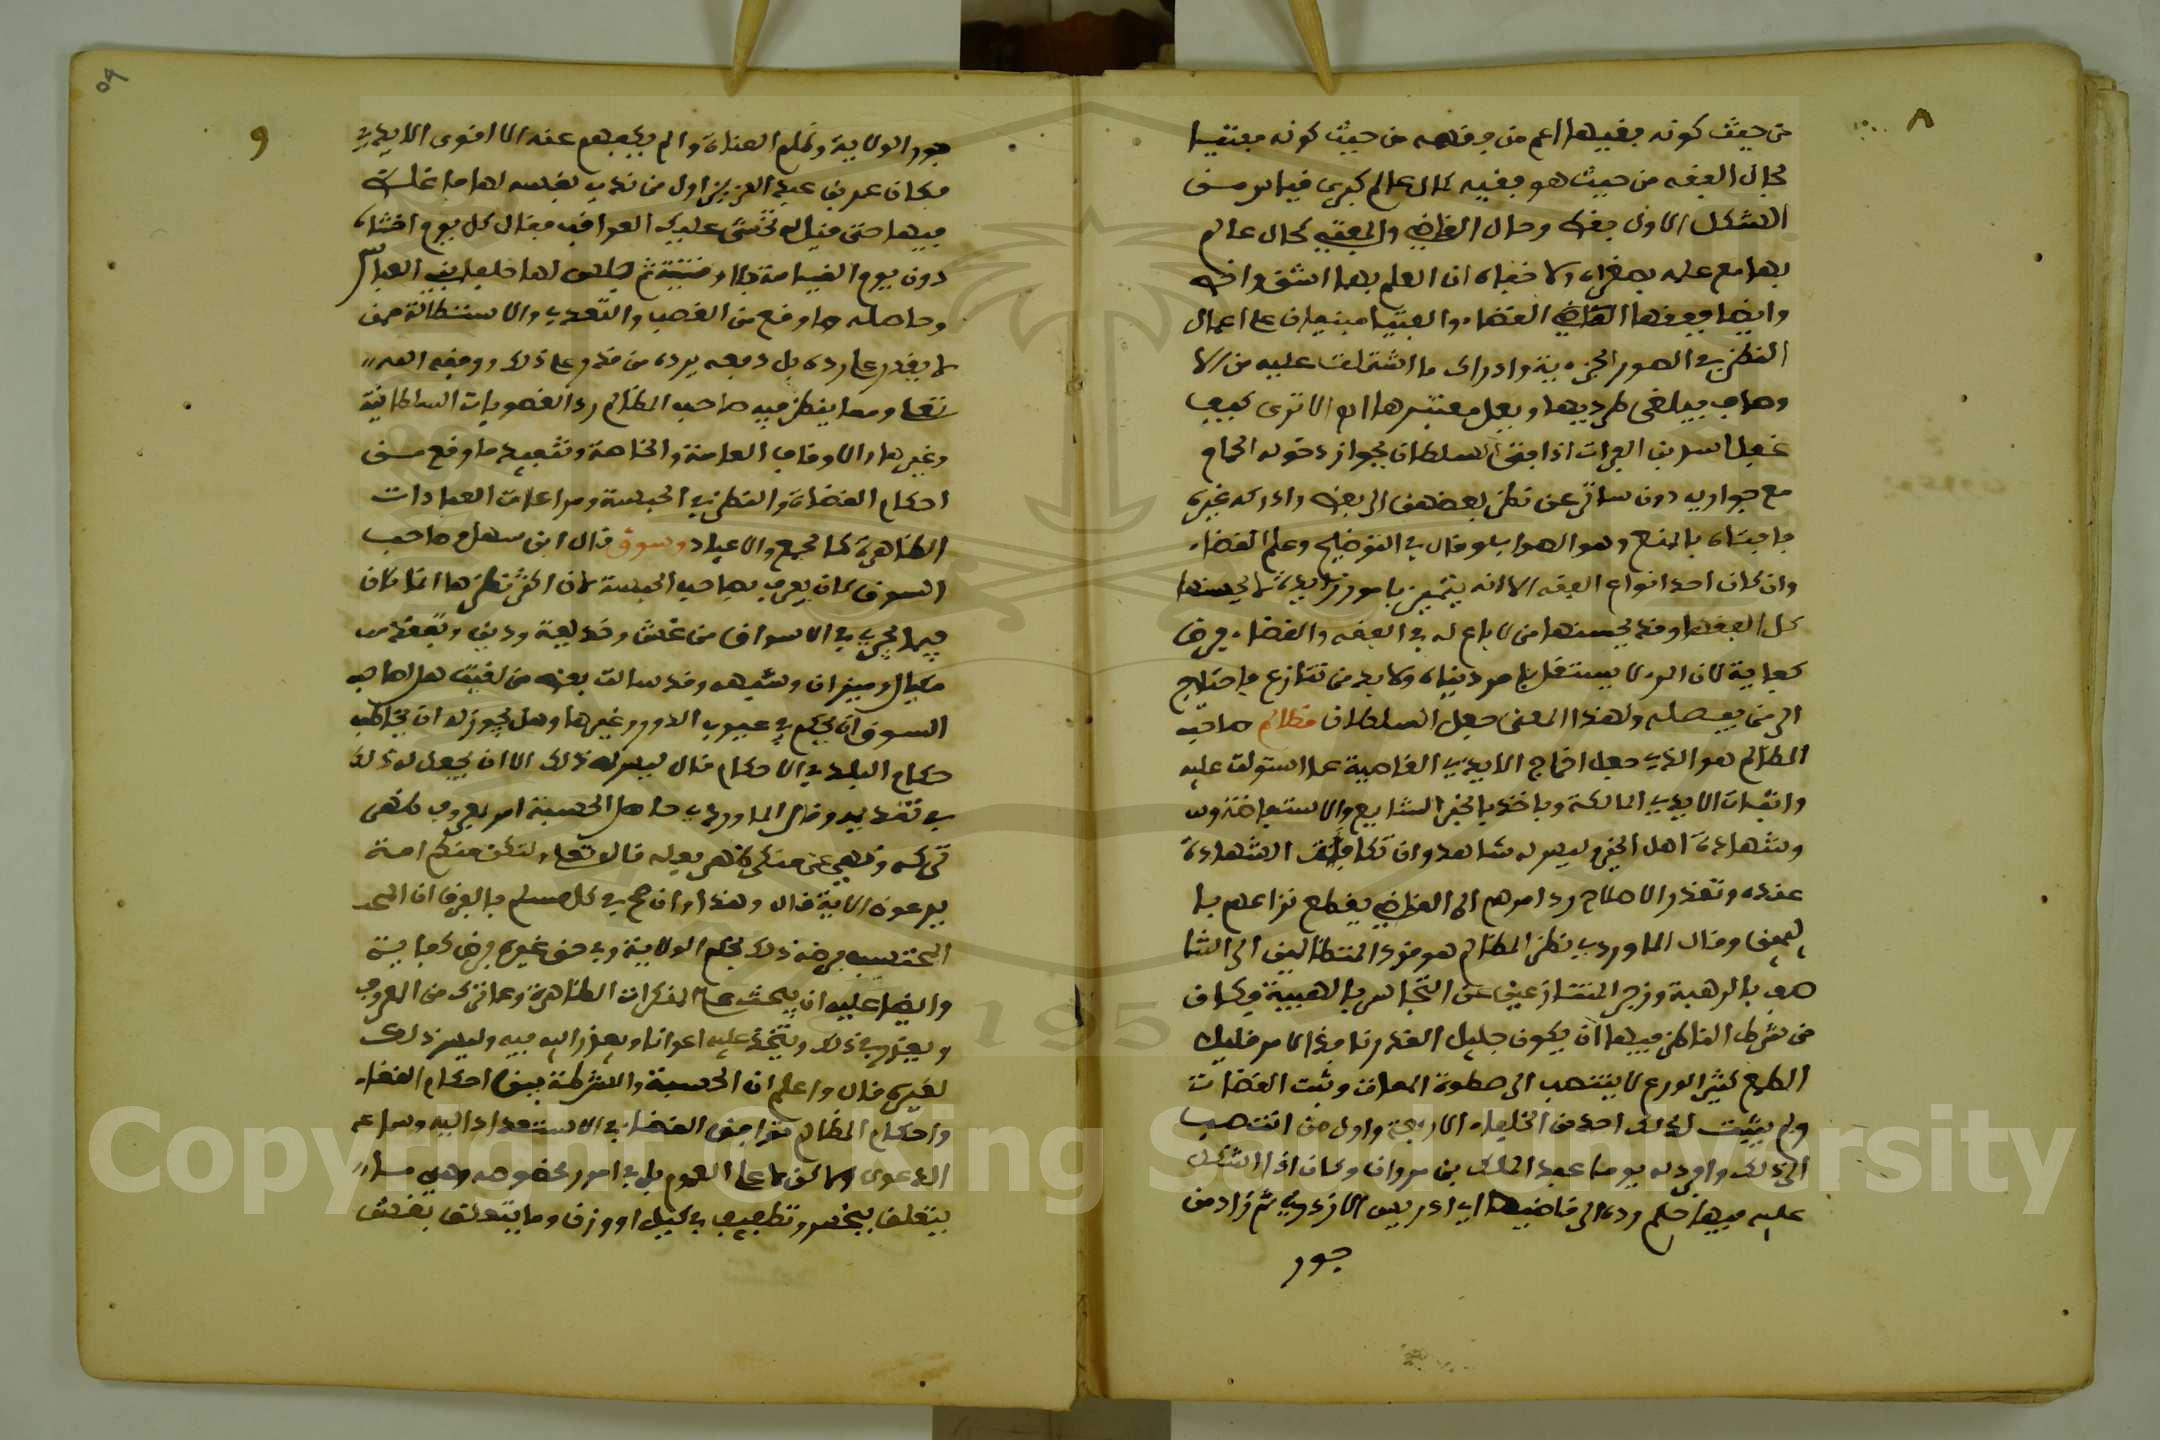 ٨
من حيث كونه فقيها اعم من فقهه من حيث كونه مفتيا
فحال الفقه من حيث هو فقيه كحال عالم بكبرى قياس من
الشكل الاول فقط وحال القاضي والمفتي كحال عالم
بها مع علمه بصغراه ولا خفاء ان العلم بهما اشق واخص
وايضا فقها القاضي القضاء والفتيا مبنيان على اعمال
النظر في الصور الجزءية وادراك ما اشتملت عليه من الا
وصاف فيلغى طرديها ويعمل معتبرها اه الا ترى كيف
غفل اسد بن الفرات اذ افتى السلطان بجواز دخوله الحمام
مع جواريه دون ساتر عن نظر بعضهن الى بعض وادركه غيره
فافتاه بالمنع وهو الصواب وقال في التوضيح وعلم القضاء
وان كان احد انواع الفقه الا انه يتميز بامور زايدة لا يحسنها
كل الفقهاء وقد يحسنها من لا باع له في الفقه والقضاء فرض
كفاية لان المرء لا يستقل بامر دنياه ولا بد من تنازع فاحتاج
الى من يفصله ولهذا المعنى جعل السلطان مظالم صاحب
المظالم هو الذي جعل اخراج الايدي الغاصبة عما استولت عليه
واثبات الايدي المالكة وياخذ بالخبر الشايع والاستفاضة و
وشهادة اهل الخير وليس له شاهد وان تكافت الشهادة
عنده وتعذر الاصلاح رد امرهم الى القاضي يقطع نزاعهم با
ليمين وقال الماوردي نظر المظالم هو قود المتظالمين الى التنا
صف بالرهبة وزجر المتنازعين عن التجاحد بالهيبة فكان
من شرط الناظر فيها ان يكون جليل القدر نافذ الامر قليل
الطمع كثير الورع لا ينتهب الى سطوة الحماة وثبت القضاة
ولم يثبت لذلك احد من الخلفاء الاربعة واول من انتصب
الى ذلك وافرد له يوما عبد الملك بن مروان وكان اذا اشكل
عليه فيها حكم رده الى قاضيه ابي ادريس الازدي ثم زاد من
جور
٩
٥٩
جور الولاية وظلم العتاة والم يكفهم عنه الا اقوى الايدي
فكان عمر بن عبد العزيز اول من ندب نفسه لها ما غلط
فيها حتى قيل له نخشى عليك العواقب فقال كل يوم اخشاه
دون يوم القيامة فلا وقيته ثم جلس لها خلفاء بني العباس
وحاصله ما وقع من الغصب والتعدي والاستطالة ممن
لا يقدر على رده بل دفعه يرده من قدر على ذلك ووفقه الله
تعلى ومما ينظر فيه صاحب المظالم رد الغصوبات السلطانية
وغيرها والاوقاف العامة والخاصة وتنفيذ ما وقع من
احكام القضاة والنظر في الحبسة ومراعات العبادات
الظاهرة كالجمع والاعياد وسوق قال ابن سهل صاحب
السوق كان يعرف بصاحب الحسبة لان اكثر نظرها انما كان
فيما يجري في الاسواق من غش وخديعة ودين وتفقد
مكيال وميزان وشبهه وقد سالت بعض من لقيت هل لصاحب
السوق ان يحكم في عيوب الدور وغيرها وهل يجوز له ان يخاطب
حكام البلد في الاحكام قال ليس له ذلك الا ان يجعل له ذلك
في تقديمه وقال الماوردي حاصل الحسبة امر بمعروف ظهر
تركه ونهي عن منكر ظهر فعله قال تعلى ولتكن منكم امة
يدعون الاية قال وهذا وان صح في كل مسلم فالفرق ان
المحتسب فرضه ذلك بحكم الولاية وفي حق غيره فرض كفاية
وايضا عليه ان يبحث عن المنكرات الظاهرة وعما ترك من المعروف
ويعزر في ذلك ويتخذ عليه اعوانا ويعزر اليه فيه وليس ذلك
لغيره قال واعلم ان الحسبة والشرطة بين احكام القضاء
واحكام المظالم توافق القضاء في الاستعداد اليه وسماعه
الدعوى ولاكن لا على العموم بل في امور مخصوصة وهي ما
يتعلق ببخس وتطفيف في كيل او وزن وما يتعلق بغش
Copyright © King Saud University
1957